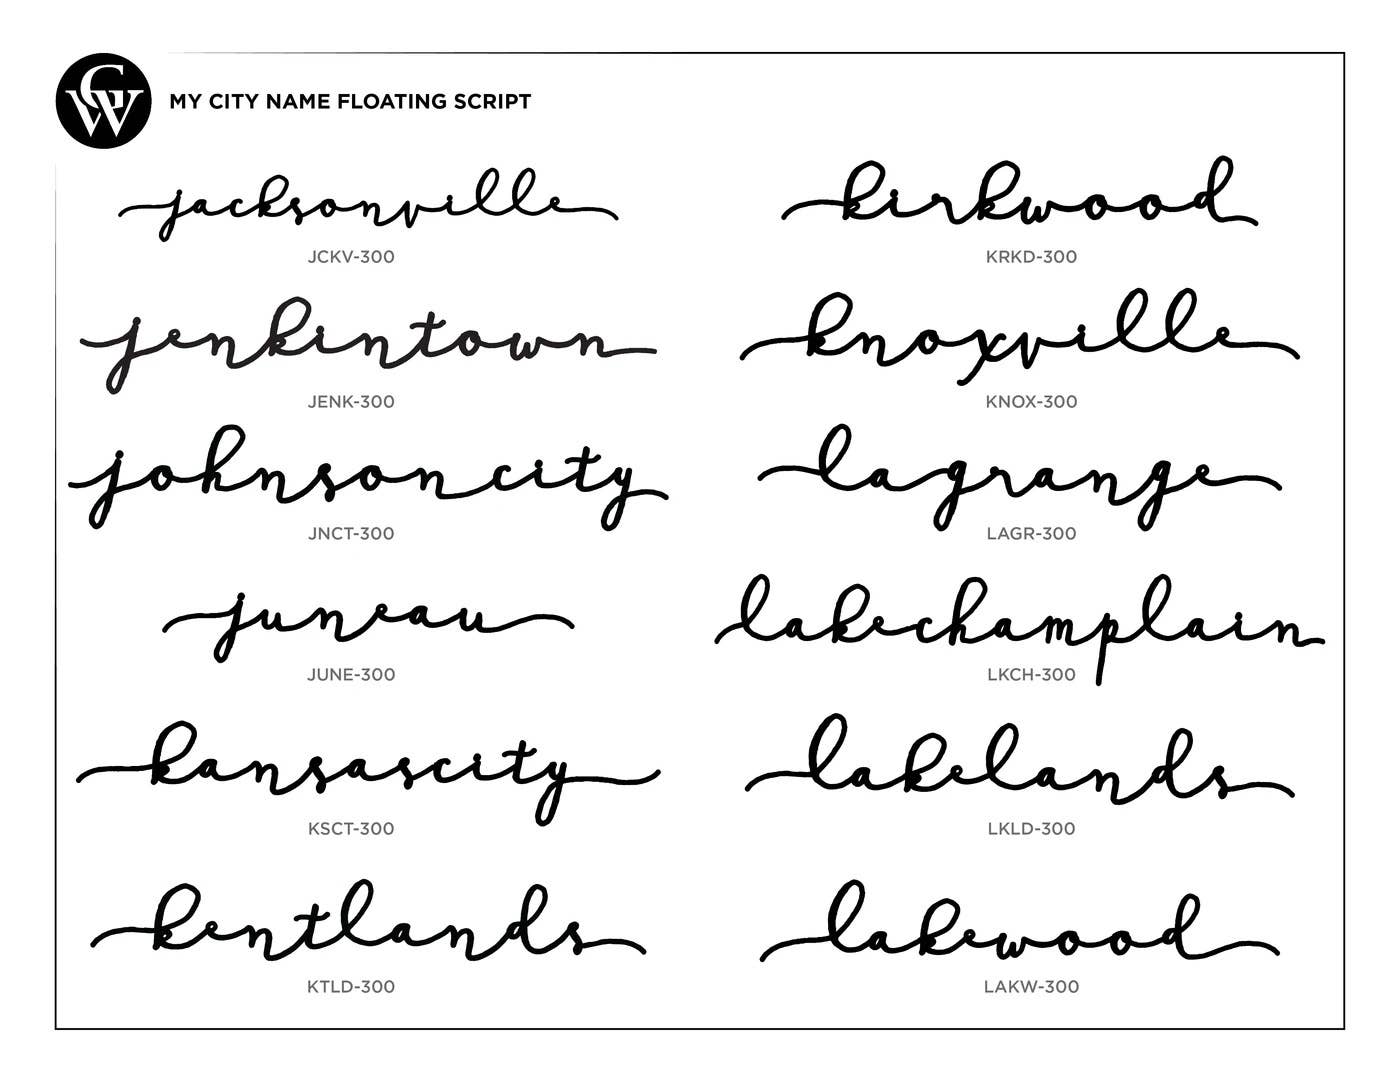 CW
MY CITY NAME FLOATING SCRIPT
jacksonville
JCKV-300
jenkintown
JENK-300
johnson city
JNCT-300
juneau
JUNE-300
kansascity
KSCT-300
kentlands
KTLD-300
kirkwood
KRKD-300
knoxville
KNOX-300
lagrange
LAGR-300
lakechamplain
LKCH-300
lakelands
LKLD-300
lakewood
LAKW-300